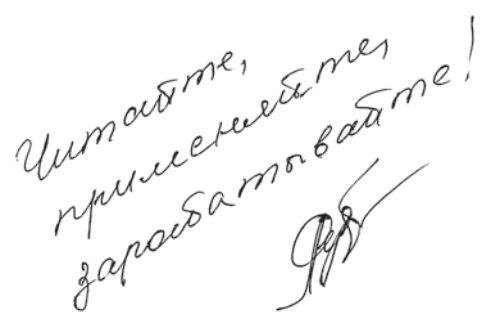 Читайте,
применяйте,
зарабатывайте!